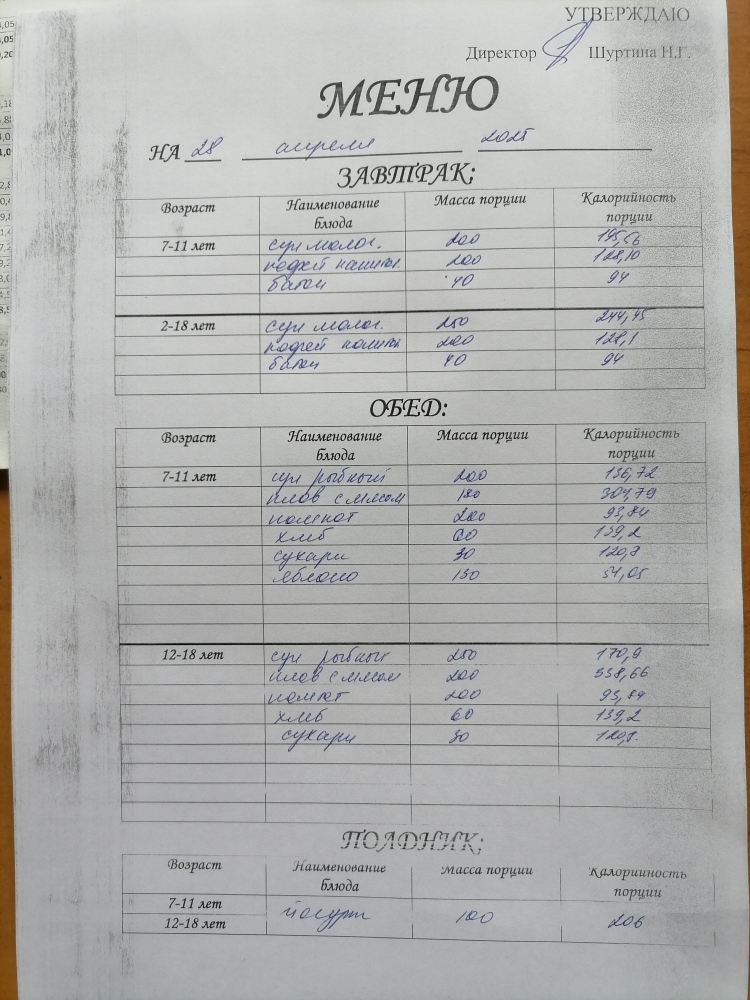 УТВЕРЖДАЮ
Директор Шуртина Н.Г.
МЕНЮ
НА 28 апреля 2025
ЗАВТРАК;
Возраст Наименование блюда Масса порции Калорийность порции
7-11 лет суп молоч. 200 195,56
кофей напиток 200 128,10
батон 40 94
2-18 лет суп молоч. 250 244,45
кофей напиток 200 128,1
батон 40 94
ОБЕД:
Возраст Наименование блюда Масса порции Калорийность порции
7-11 лет суп рыбный 200 136,72
плов с мясом 180 304,79
компот 200 93,84
хлеб 60 139,2
сухари 30 120,3
яблоко 150 54,05
12-18 лет суп рыбный 250 170,9
плов с мясом 200 338,66
компот 200 93,84
хлеб 60 139,2
сухари 30
ПОЛДНИК;
Возраст Наименование блюда Масса порции Калорийность порции
7-11 лет
йогурт 100 206
12-18 лет